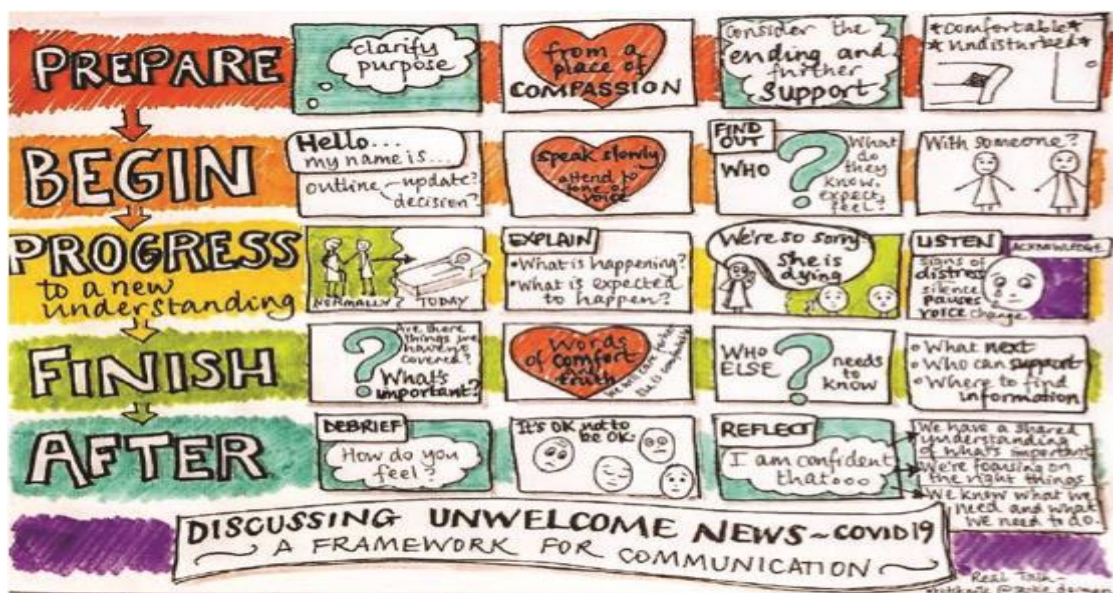 PREPARE
clarify
purpose
from a
place of
COMPASSION
Consider the
ending and
further
support
*Comfortable*
*Undisturbed*
BEGIN
Hello...
my name is...
outline
update?
decision?
speak slowly
attend to
tone of
voice
FIND
OUT
WHO
?
What
do
they
know,
expect,
feel?
With someone?
PROGRESS
to a new
understanding
NORMALLY?
TODAY
EXPLAIN
•What is happening?
•What is expected
to happen?
We're so sorry
She is
dying
LISTEN
ACKNOWLEDGE
signs of
distress
silence
pauses
voice change
FINISH
?
Are there
things we
haven't
covered?
What's
important?
Words
of comfort
and
truth
WHO
ELSE
?
needs
to
know
What next
Who can support
Where to find
information
AFTER
DEBRIEF
How do you
feel?
It's OK not to
be OK.
REFLECT
I am confident
that...
We have a shared
understanding
of what's important
We're focusing on
the right things
We know what we
need and what
we need to do.
DISCUSSING UNWELCOME NEWS~COVID19
~ A FRAMEWORK FOR COMMUNICATION ~
Real Talk